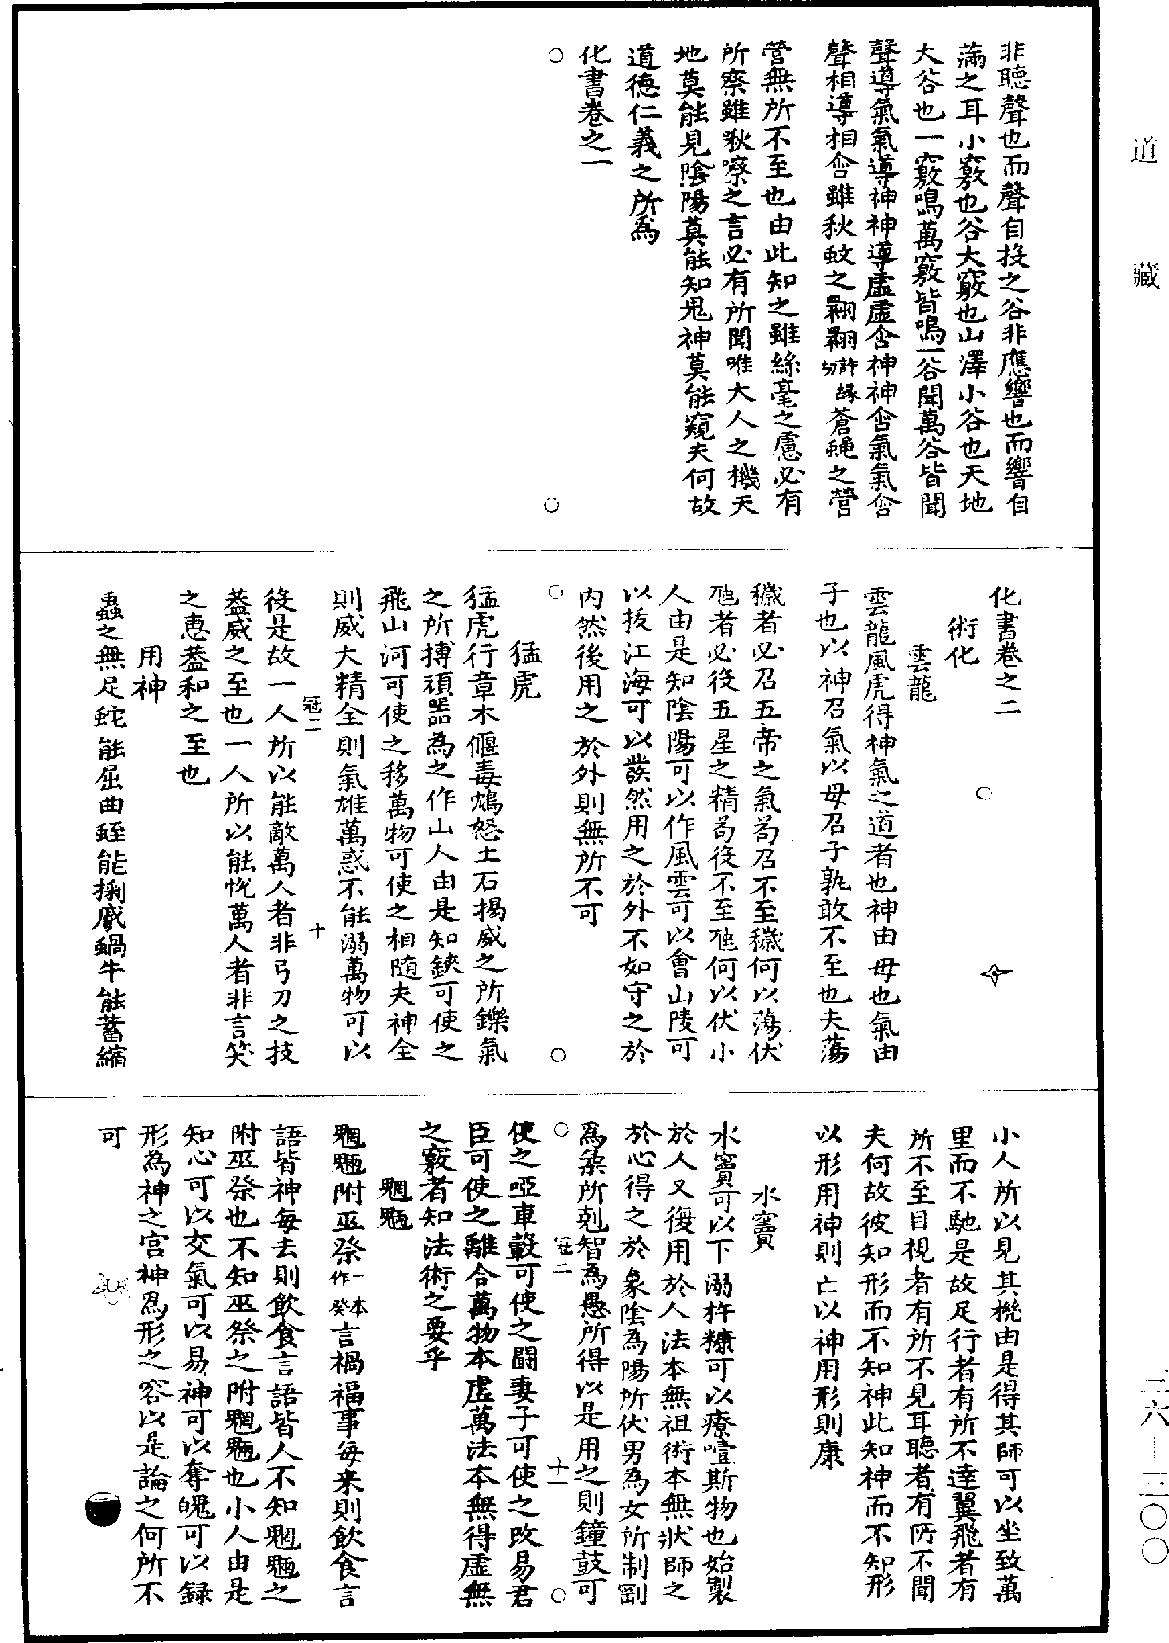 道藏
非聽聲也而聲自投之谷非應響也而響自
滿之耳小竅也谷大竅也山澤小谷也天地
大谷也一竅鳴萬竅皆鳴一谷聞萬谷皆聞
聲導氣氣導神神導虛虛含神神含氣氣含
聲相導相含雖秋蚊之翾翾許緣切蒼蠅之營
營無所不至也由此知之雖絲毫之慮必有
所察雖秋嚓之言必有所聞唯大人之機天
地莫能見陰陽莫能知鬼神莫能窺夫何故
道德仁義之所為
化書卷之一
化書卷之二
術化
雲龍
雲龍風虎得神氣之道者也神由母也氣由
子也以神召氣以母召子孰敢不至也夫蕩
穢者必召五帝之氣苟召不至穢何以蕩伏
虺者必役五星之精苟役不至虺何以伏小
人由是知陰陽可以作風雲可以會山陵可
以拔江海可以發然用之於外不如守之於
內然後用之於外則無所不可
猛虎
猛虎行草木偃毒鴆怒土石揭威之所鑠氣
之所搏頑嚚為之作山人由是知鋏可使之
飛山河可使之移萬物可使之相隨夫神全
則威大精全則氣雄萬惑不能溺萬物可以
冠二 十
役是故一人所以能敵萬人者非弓刀之技
蓋威之至也一人所以能悅萬人者非言笑
之惠蓋和之至也
用神
蟲之無足蛇能屈曲蛭能掬蹙蝸牛能蓄縮
小人所以見其機由是得其師可以坐致萬
里而不馳是故足行者有所不達翼飛者有
所不至目視者有所不見耳聽者有所不聞
夫何故彼知形而不知神此知神而不知形
以形用神則亡以神用形則康
水竇
水竇可以下溺杵糠可以療噎斯物也始製
於人又復用於人法本無祖術本無狀師之
於心得之於象陰為陽所伏男為女所制剛
為柔所剋智為愚所得以是用之則鐘鼓可
冠二 十一
使之啞車轂可使之鬬妻子可使之改易君
臣可使之離合萬物本虛萬法本無得虛無
之竅者知法術之要乎
魍魎
魍魎附巫祭一本作癸言禍福事每来則飲食言
語皆神每去則飲食言語皆人不知魍魎之
附巫祭也不知巫祭之附魍魎也小人由是
知心可以交氣可以易神可以奪魄可以録
形為神之宮神為形之容以是論之何所不
可
三六—三〇〇